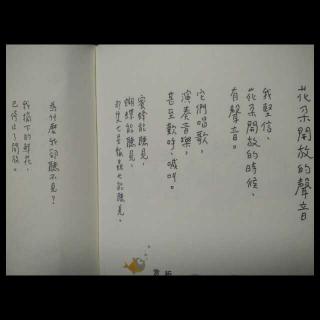 花朵開放的聲音
我堅信、
花朵開放的時候、
有聲音。
它們唱歌、
演奏音樂、
甚至歡呼、喊叫。
蜜蜂能聽見、
蝴蝶能聽見、
能聽見、
為什麼我卻聽不見？
我摘下的鮮花、
已停止了開放。